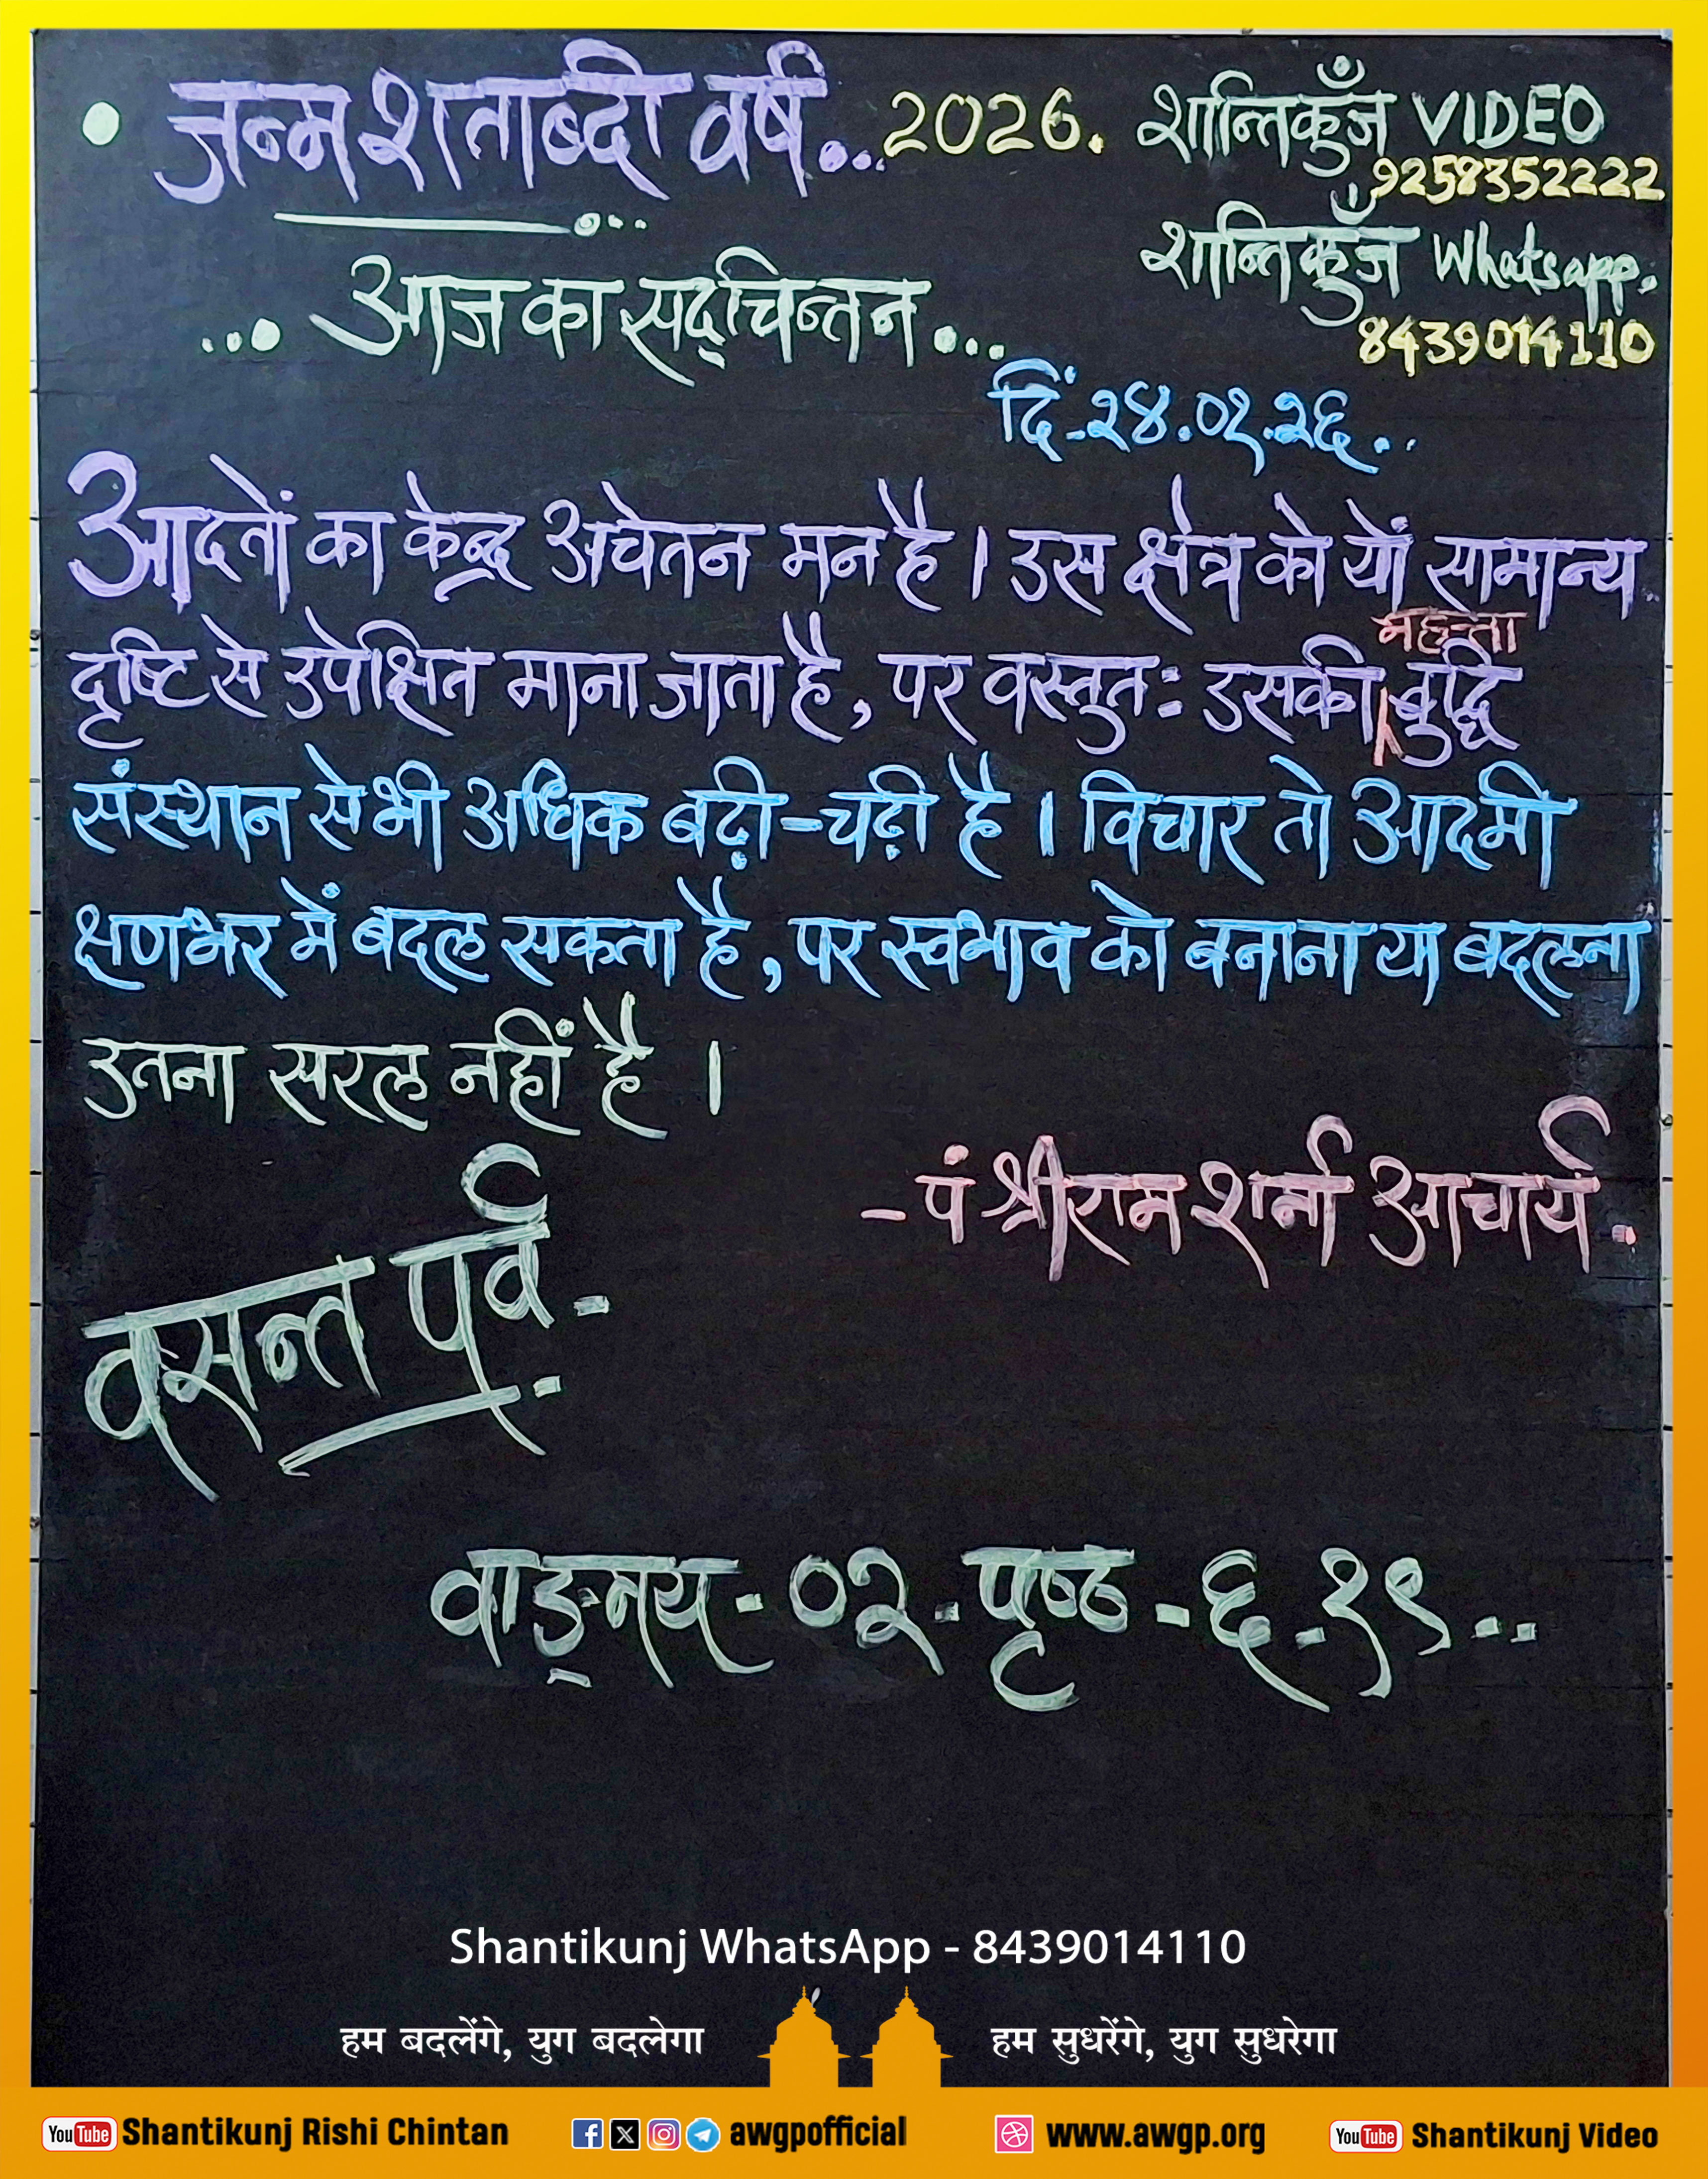 • जन्म शताब्दी वर्ष... 2026.
शान्तिकुँज VIDEO
9258352222
शान्तिकुँज Whatsapp.
8439014110
... आज का सद्चिन्तन...
दिं-२४.०१.२६..
आदतों का केन्द्र अचेतन मन है । उस क्षेत्र को यों सामान्य
दृष्टि से उपेक्षित माना जाता है, पर वस्तुतः उसकी महत्ता बुद्धि
संस्थान से भी अधिक बढ़ी-चढ़ी है । विचार तो आदमी
क्षणभर में बदल सकता है, पर स्वभाव को बनाना या बदलना
उतना सरल नहीं है ।
- पं श्रीराम शर्मा आचार्य.
वसन्त पर्व.
वाङ्मय - ०२ - पृष्ठ - ६.१९..
Shantikunj WhatsApp - 8439014110
हम बदलेंगे, युग बदलेगा हम सुधरेंगे, युग सुधरेगा
YouTube Shantikunj Rishi Chintan awgpofficial www.awgp.org YouTube Shantikunj Video